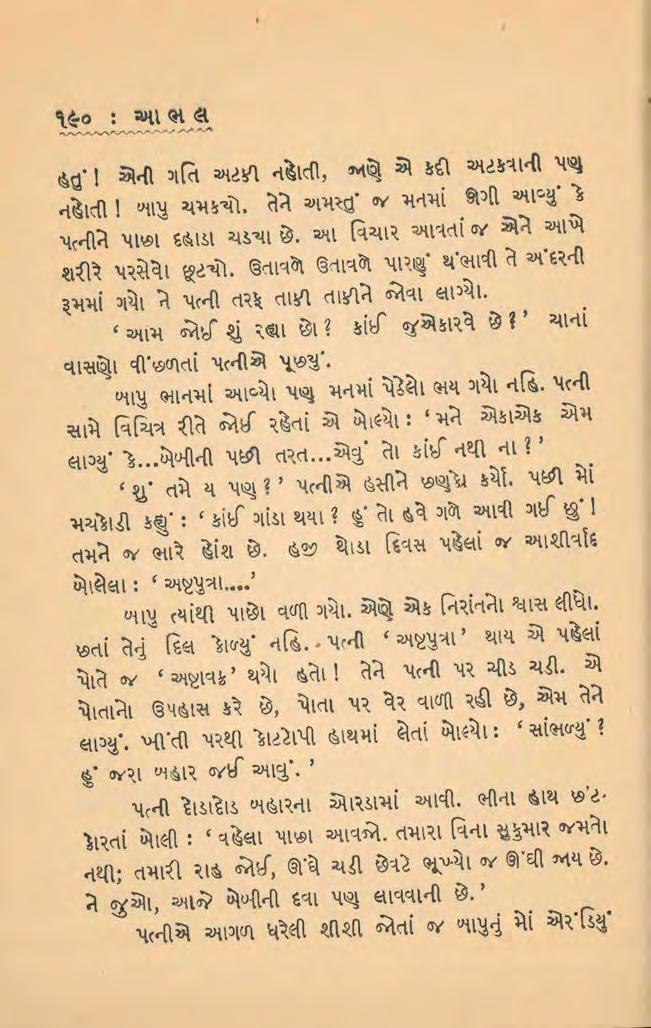 ૧૯૦ : આભલ
હતું! એની ગતિ અટકી નહોતી, જાણે એ કદી અટકવાની પણ
નહોતી! બાપુ ચમક્યો. તેને અમસ્તું જ મનમાં ઊગી આવ્યું કે
પત્નીને પાછા દહાડા ચડ્યા છે. આ વિચાર આવતાં જ એને આખે
શરીરે પરસેવો છૂટ્યો. ઉતાવળે ઉતાવળે પારણું થંભાવી તે અંદરની
રૂમમાં ગયો ને પત્ની તરફ તાકી તાકીને જોવા લાગ્યો.
‘આમ જોઈ શું રહ્યા છો? કાંઈ જુએકારવે છે?’ ચાનાં
વાસણો વીંછળતાં પત્નીએ પૂછ્યું.
બાપુ ભાનમાં આવ્યો પણ મનમાં પેઠેલો ભય ગયો નહિ. પત્ની
સામે વિચિત્ર રીતે જોઈ રહેતાં એ બોલ્યો: ‘મને એકાએક એમ
લાગ્યું કે...બેબીની પછી તરત...એવું તો કાંઈ નથી ના?’
‘શું તમે ય પણ?’ પત્નીએ હસીને છણકો કર્યો. પછી મોં
મચકોડી કહ્યું: ‘કાંઈ ગાંડા થયા? હું તો હવે ગળે આવી ગઈ છું!
તમને જ ભારે હોંશ છે. હજી થોડા દિવસ પહેલાં જ આશીર્વાદ
બોલેલા: ‘અષ્ટપુત્રા....’
બાપુ ત્યાંથી પાછો વળી ગયો. એણે એક નિરાંતનો શ્વાસ લીધો.
છતાં તેનું દિલ કોળ્યું નહિ. પત્ની ‘અષ્ટપુત્રા’ થાય એ પહેલાં
પોતે જ ‘અષ્ટાવક્ર’ થયો હતો! તેને પત્ની પર ચીડ ચડી. એ
પોતાનો ઉપહાસ કરે છે, પોતા પર વેર વાળી રહી છે, એમ તેને
લાગ્યું. ખીંતી પરથી કોટટોપી હાથમાં લેતાં બોલ્યો: ‘સાંભળ્યું?
હું જરા બહાર જઈ આવું.’
પત્ની દોડાદોડ બહારના ઓરડામાં આવી. ભીના હાથ છંટ-
કોરતાં બોલી: ‘વહેલા પાછા આવજો. તમારા વિના સુકુમાર જમતો
નથી; તમારી રાહ જોઈ, ઊંઘે ચડી છેવટે ભૂખ્યો જ ઊંઘી જાય છે.
ને જુઓ, આજે બેબીની દવા પણ લાવવાની છે.’
પત્નીએ આગળ ધરેલી શીશી જોતાં જ બાપુનું મોં એરંડિયું